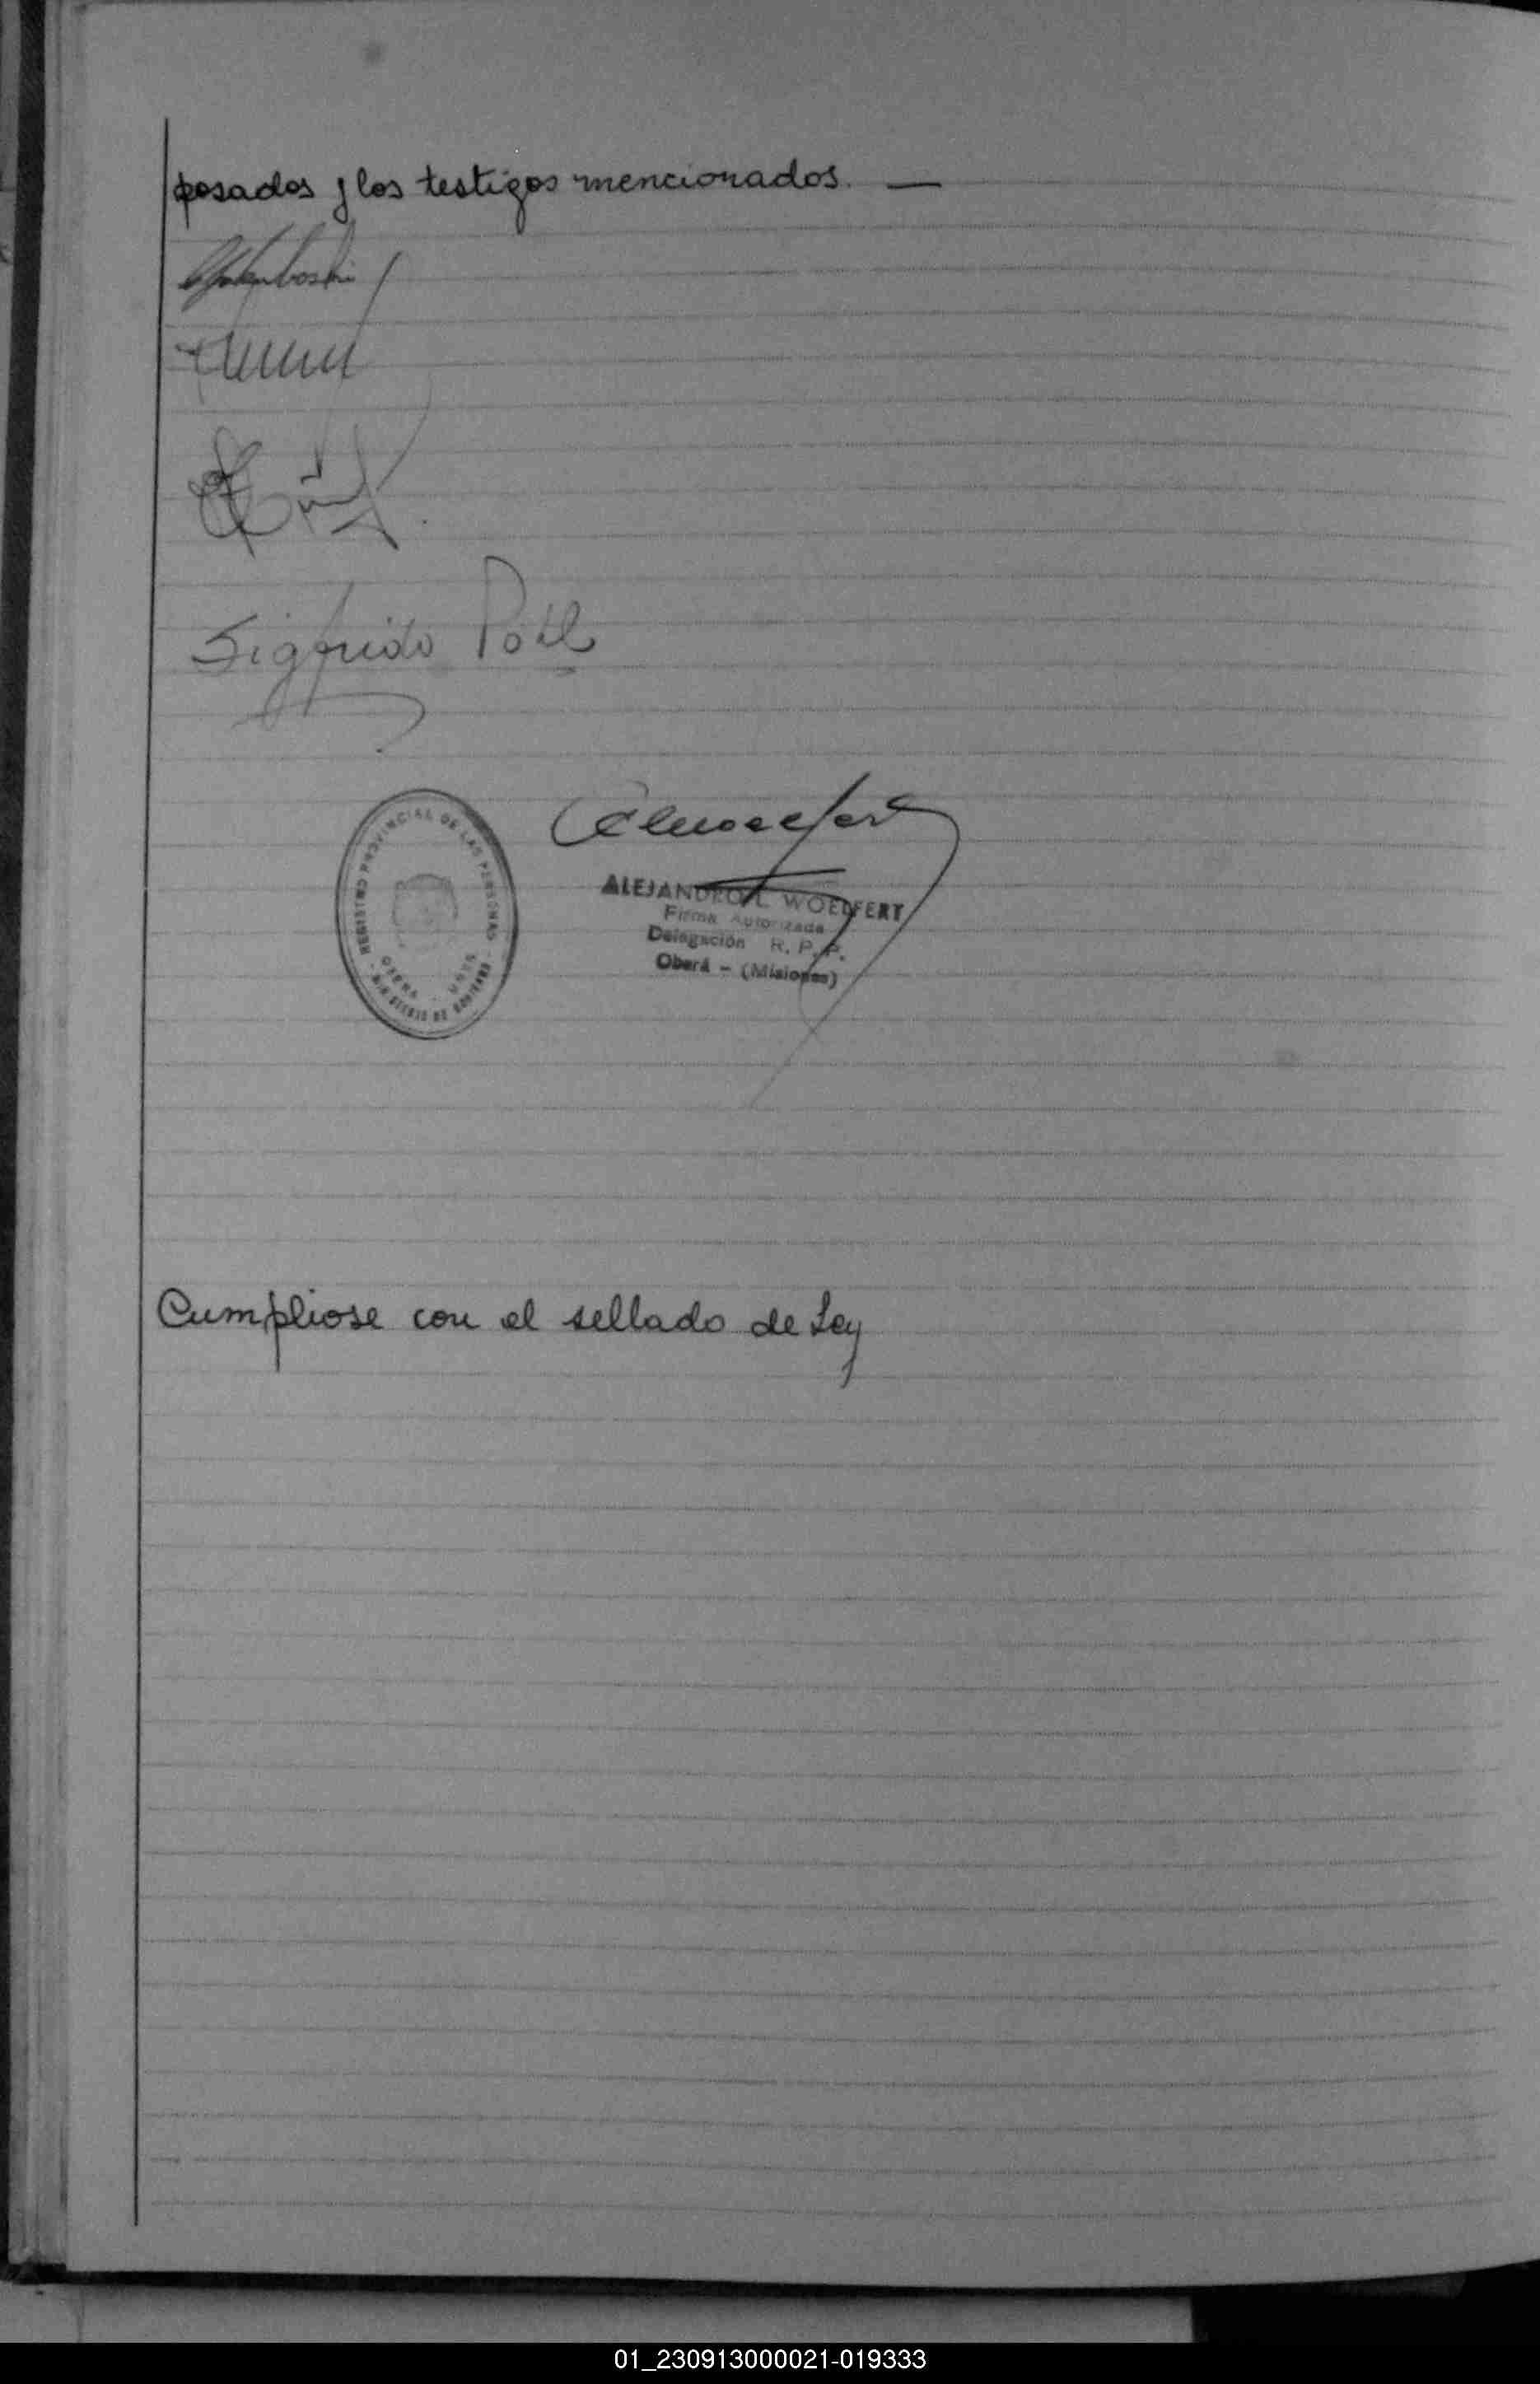 posados y los testigos mencionados. —
Sigfrido Pohl
REGISTRO PROVINCIAL DE LAS PERSONAS
OBERA - MNES
MINISTERIO DE GOBIERNO
ALEJANDRO L. WOELFERT
Firma Autorizada
Delegación R. P. P.
Oberá - (Misiones)
Cumpliose con el sellado de Ley
01_230913000021-019333